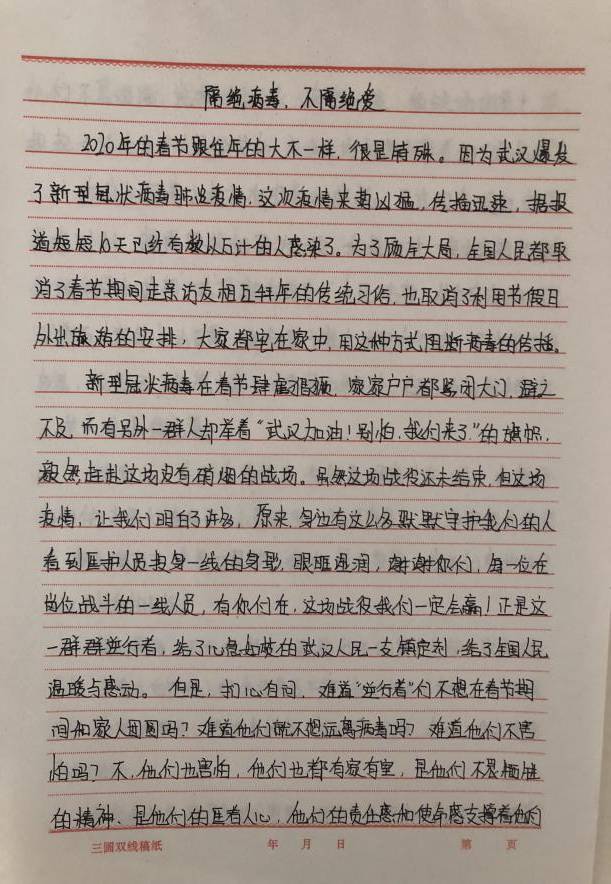 隔绝病毒，不隔绝爱
2020年的春节跟往年的大不一样，很是特殊。因为武汉爆发
了新型冠状病毒肺炎疫情，这次疫情来势凶猛，传播迅速，据报
道短短几天已经有数以万计的人感染了。为了顾全大局，全国人民都取
消了春节期间走亲访友相互拜年的传统习俗，也取消了利用节假日
外出旅游的安排，大家都宅在家中，用这种方式阻断病毒的传播。
新型冠状病毒在春节肆虐猖獗，家家户户都紧闭大门，避之
不及，而有另外一群人却举着“武汉加油！别怕，我们来了”的旗帜，
毅然赶赴这场没有硝烟的战场。虽然这场战役还未结束，但这场
疫情，让我们明白了许多，原来，身边有这么多默默守护我们的人
看到医护人员投身一线的身影，眼眶湿润，谢谢你们，每一位在
岗位战斗的一线人员，有你们在，这场战役我们一定会赢！正是这
一群群逆行者，给了心急如焚的武汉人民一支镇定剂，给了全国人民
温暖与感动。但是，扪心自问，难道“逆行者”们不想在春节期
间和家人团圆吗？难道他们就不想远离病毒吗？难道他们不害
怕吗？不，他们也害怕，他们也都有家有室，是他们不畏牺牲
的精神、是他们的医者人心，他们的责任感和使命感支撑着他们
三圆双线稿纸 年 月 日 第 页